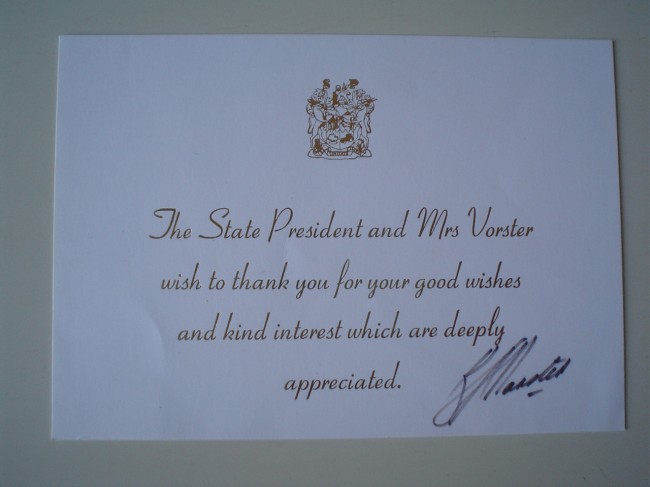 The State President and Mrs Vorster
wish to thank you for your good wishes
and kind interest which are deeply
appreciated.
Vorster